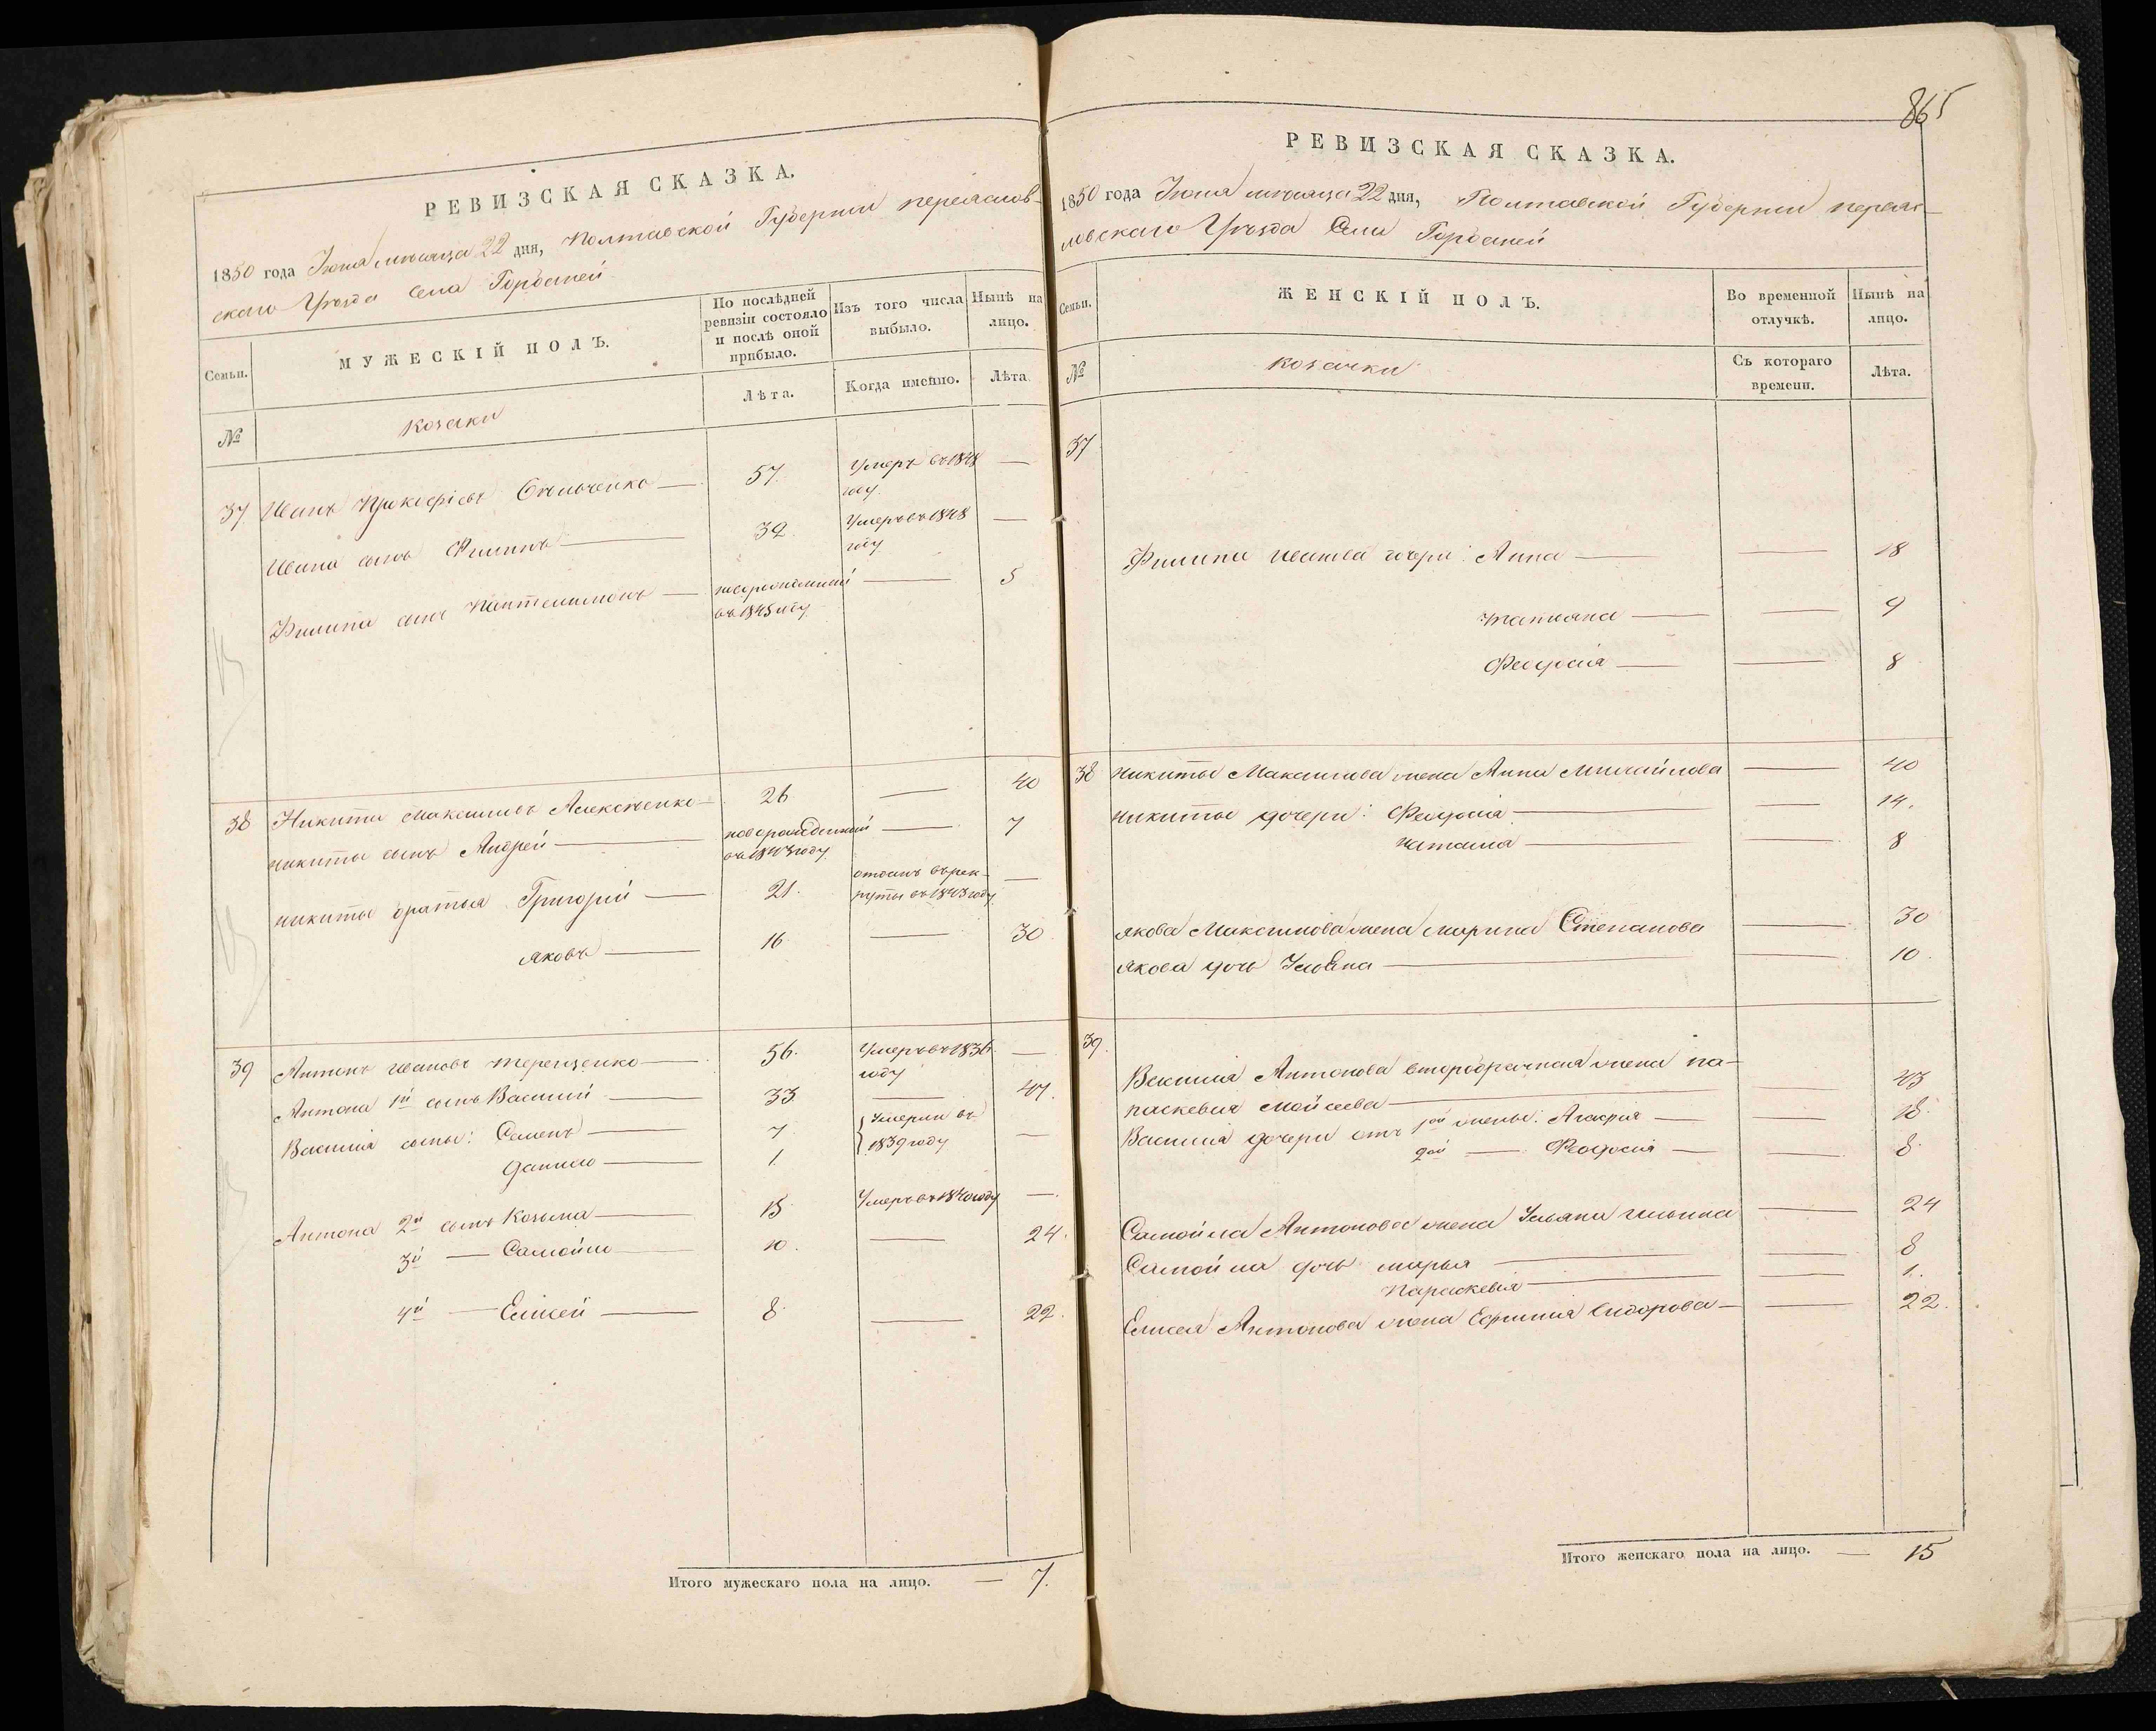 РЕВИЗСКАЯ СКАЗКА.
1850 года Іюня мѣсяца 22 дня, Полтавской Губерніи переяслов-
скаго Уѣзда Села Горбаней
Семьи.
МУЖЕСКІЙ ПОЛЪ.
По послѣдней
ревизіи состояло
и послѣ оной
прибыло.
Изъ того числа
выбыло.
Нынѣ на
лицо.
№
козаки
Лѣта.
Когда именно.
Лѣта
37 Иванъ Прокофіевъ — 57. Умеръ въ 1848 —
году.
Ивана сынъ Филипъ — 32. Умеръ въ 1848 —
году
Филипа сынъ Пантелимонъ — новорожденный — 5
въ 1845 году
38 Никита Максимовъ Алексѣенко — 26 — 40
никиты сынъ Андрей — новорожденный — 7
въ 1843 году.
никиты братья Григорій — 21. отданъ въ рек- —
руты въ 1843 году
яковъ — 16 — 30
39 Антонъ Ивановъ терещенко — 56. Умеръ въ 1836 —
году
Антона 1й сынъ Василий — 33. — 47.
Василія сыны: Семенъ — 7 Умерли въ —
данило — 1. 1839 году
Антона 2й сынъ Козьма — 15 Умеръ въ 1840 году —
3й — Самойло — 10. — 24.
4й — Елисей — 8. — 22.
Итого мужескаго пола на лицо. — 7.
865
РЕВИЗСКАЯ СКАЗКА.
1850 года Іюня мѣсяца 22 дня, Полтавской Губерніи переяс-
ловскаго Уѣзда Села Горбаней
Семьи.
ЖЕНСКІЙ ПОЛЪ.
Во временной
отлучкѣ.
Нынѣ на
лицо.
№
козачки
Съ котораго
времени.
Лѣта.
37
Филипа Иванова дочери: Анна — — 18
татіяна — — 9
Феодосія — — 8
38 никиты Максимова жена Анна Михайлова — 40
никиты дочери: Феодосія — — 14.
наталія — — 8
якова Максимова жена марина Степанова — 30
якова дочь Уліяна — — 10.
39.
Василія Антонова второбрачная жена па-
раскевія мойсеева — — 43
Василія дочери отъ 1ой жены: Агафія — — 18.
2ой — Феодосія — — 8.
Самойла Антонова жена Ульяна ильина — 24
Самойла дочь марья — — 8
Параскевія — — 1.
Елисея Антонова жена Ефимія Сидорова — — 22.
Итого женскаго пола на лицо. — 15